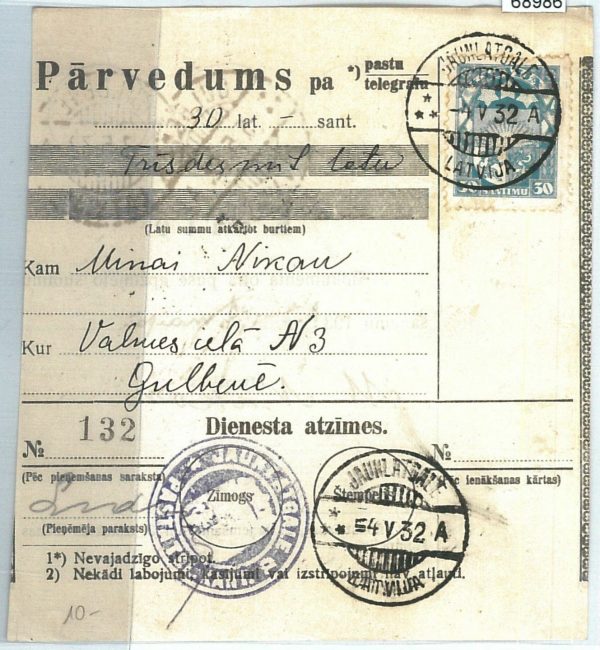 68986
Pārvedums pa *) pastu
telegrafu
30 lat. - sant.
Trīsdesmit latu
(Latu summu atkārtot burtiem)
Kam Minai Nikau
Kur Valmes ielā N 3
Gulbenē.
JAUNLATGALE
-4 V 32 A
LATVIJA
30 SANTIMU 30
Dienesta atzīmes.
№ 132
№
(Pēc pieņemšanas saraksta)
(Pēc ienākšanas kārtas)
Zīmogs
Stempelis
JAUNLATGALE
-4 V 32 A
LATVIJA
(Pieņēmēja paraksts)
1*) Nevajadzīgo strīpot.
2) Nekādi labojumi, kasījumi vai izstrīpojumi nav atļauti.
10-